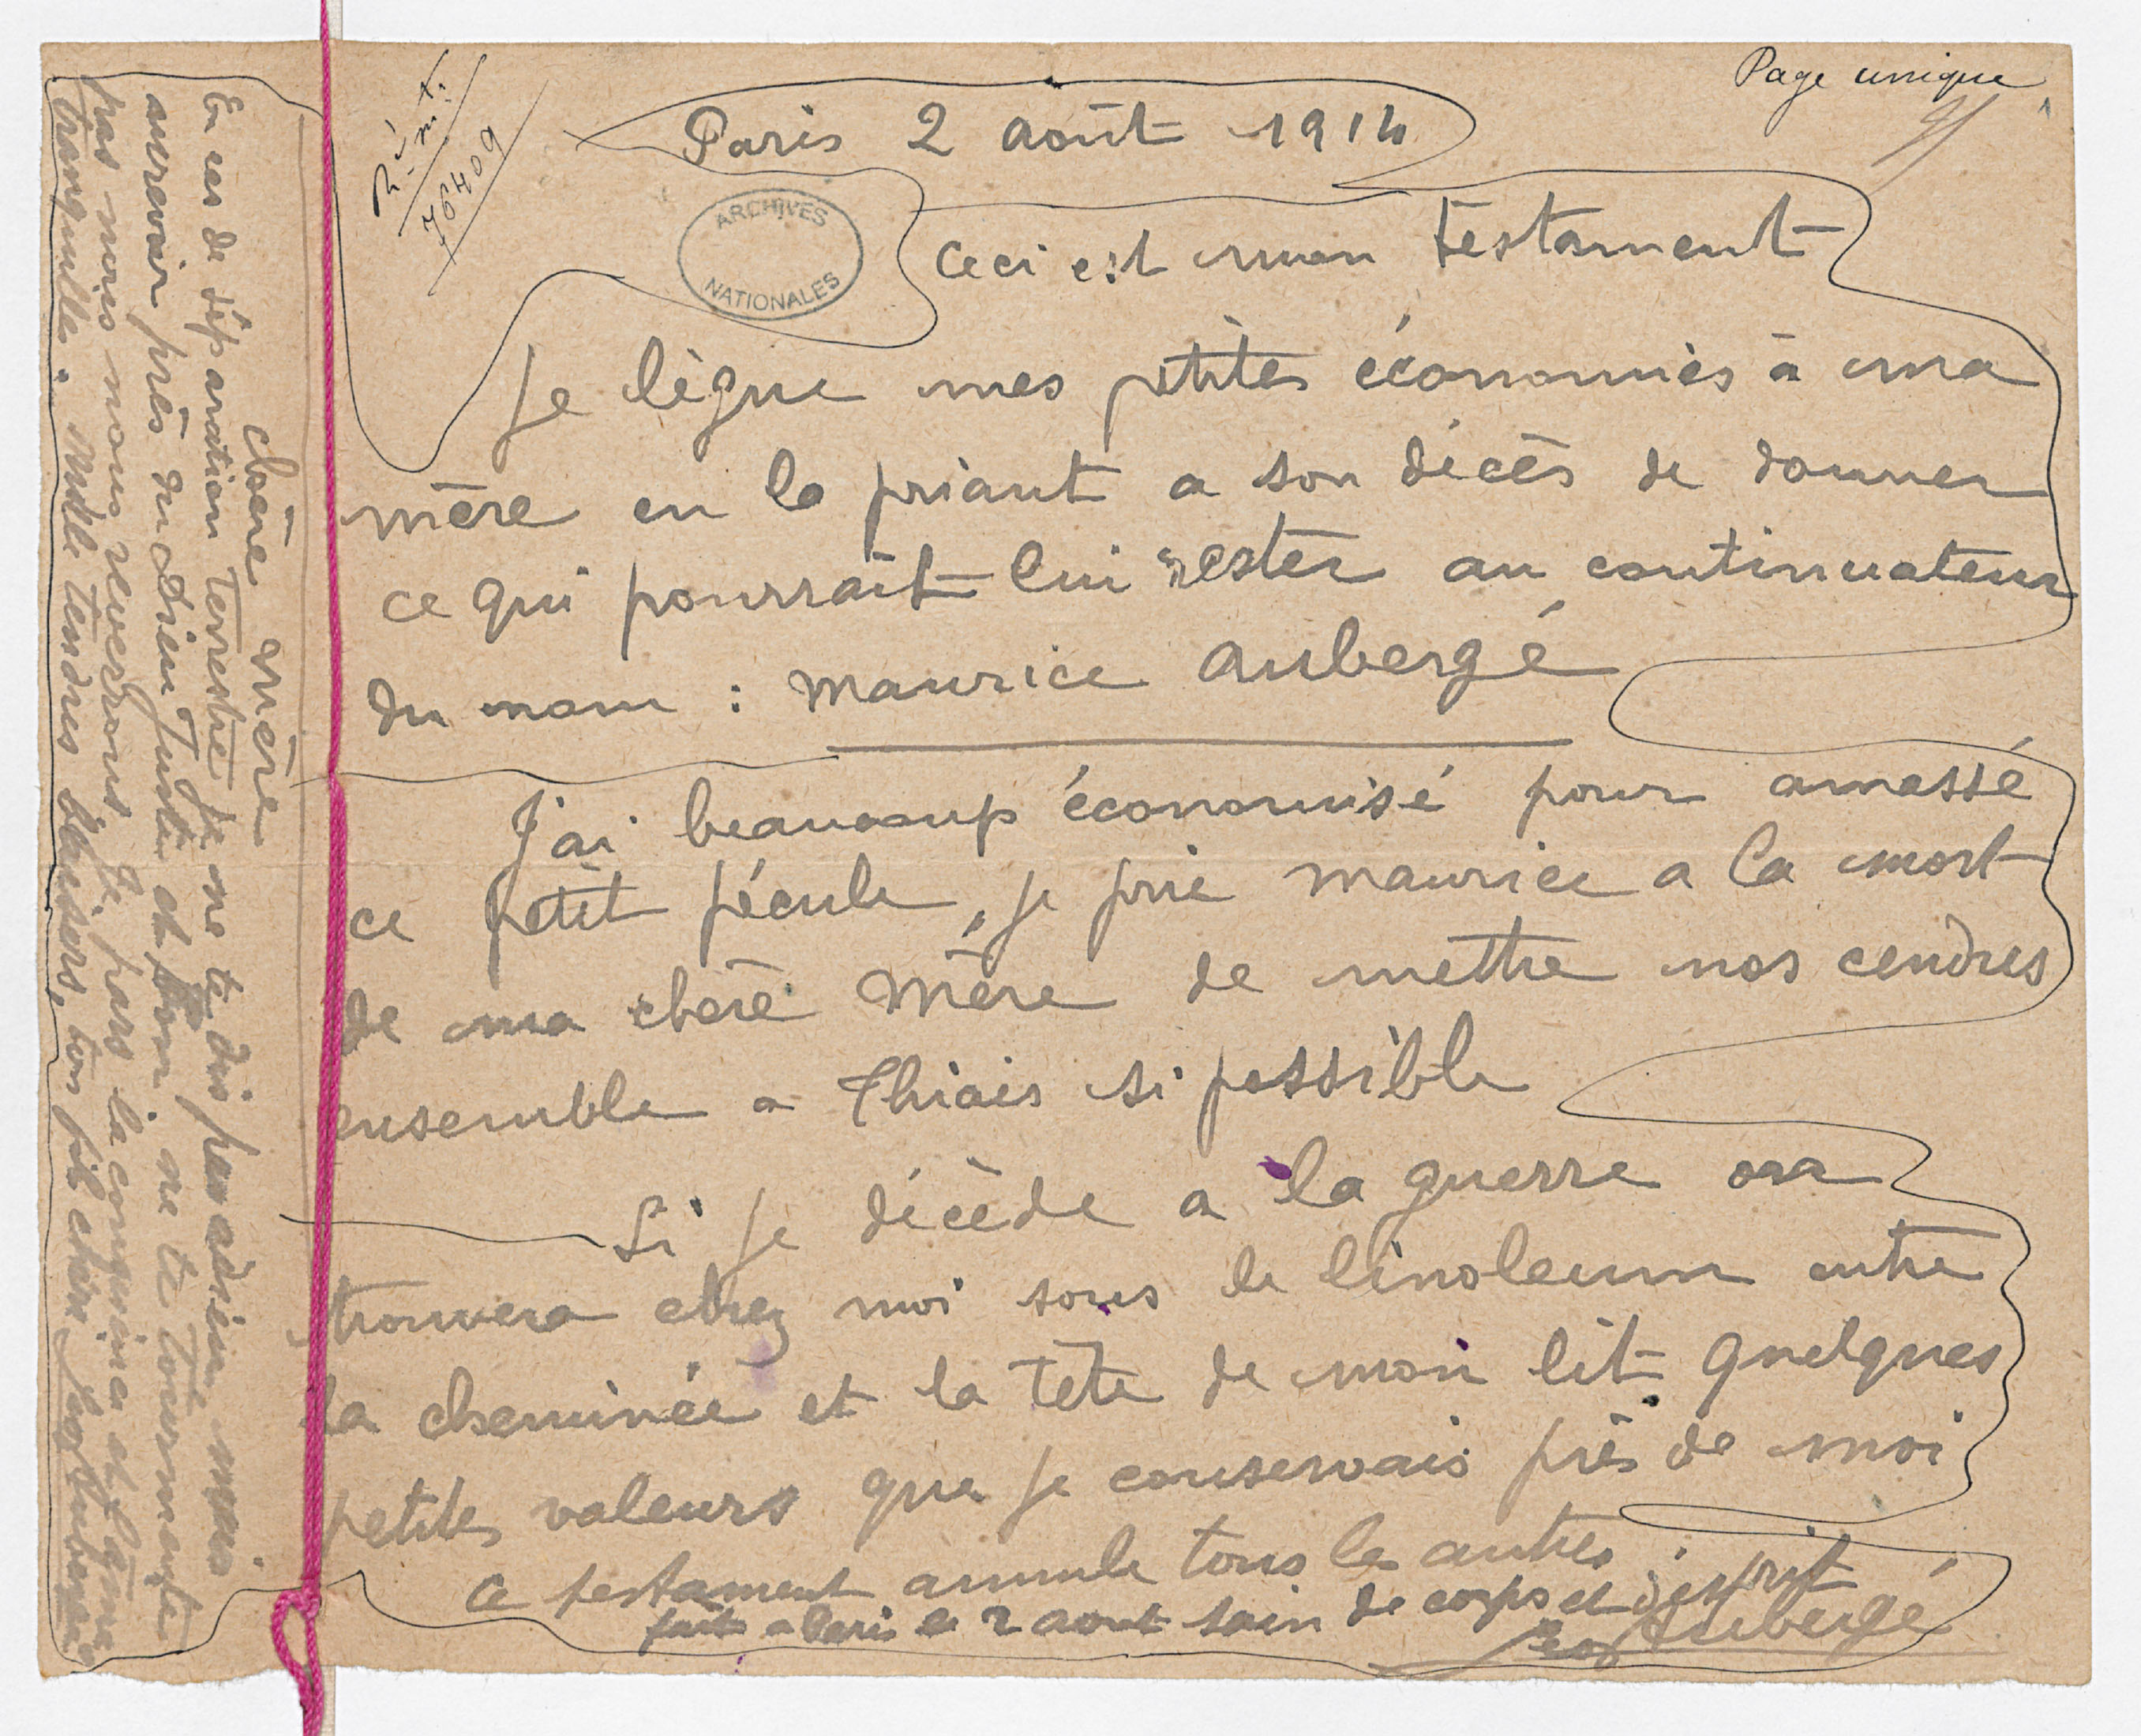 Page unique
Rémt.
76409
Paris 2 août 1914
ARCHIVES
NATIONALES
Ceci est mon testament
Je lègue mes petites économies à ma
mère en la priant a son décès de donner
ce qui pourrait lui rester au continuateur
du nom : Maurice Aubergé
J'ai beaucoup économisé pour amassé
ce petit pécule, je prie Maurice a la mort
de ma chère Mère de mettre nos cendres
ensemble a Thiais si possible
Si je décède a la guerre on
trouvera chez moi sous le linoleum entre
la cheminée et la tête de mon lit quelques
petites valeurs que je conservais près de moi
Ce testament annule tous les autres
fait a Paris le 2 aout sain de corps et d'esprit
Aubergé
chère mère
En cas de séparation terrestre je ne te dis pas adieu mais
aurevoir près du Dieu Juste et bon, ne te tourmente
pas nous nous reverrons. Je pars la conscience et l'âme
tranquille. Mille tendres baisers, ton fils chéri Aubergé